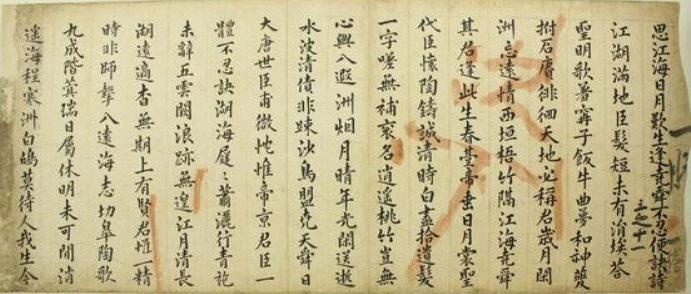 思江海日月歎生逢堯舜不忍便訣詩
江湖滿地臣髮短未有涓埃答
聖明歌著甯子飯牛曲夢和神夔
拊石賡徘徊天地心稱名歲月閑
洲忘遠情西垣梧竹隔江海堯舜
其君逢此生春臺帝垂日月裳聖
代臣懷陶鑄誠清時白盡拾遺髮
一字嗟無補袞名逍遥桃竹豈無
心興八遐洲畑月晴年光閑送逝
水波清債非踈沙鳥盟堯天舜日
大唐世臣甫微忱惟帝京名臣一
體不忍訣湖海屐蕭灑行青袍
未辭五雲闕浪跡無遑江月清長
湖遠適杳無期上有賢君惟一精
時非師摯八遠海志切皐陶歌
九成階蓂瑞日屬休明未可閒消
遥海程寒洲白鷗莫待人我生今